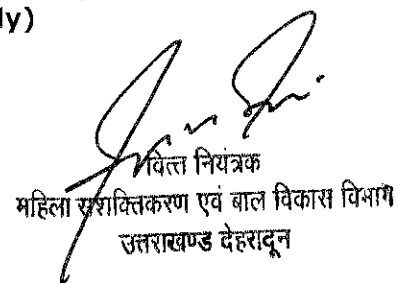 ly)
वित्त नियंत्रक
महिला सशक्तिकरण एवं बाल विकास विभाग
उत्तराखण्ड देहरादून